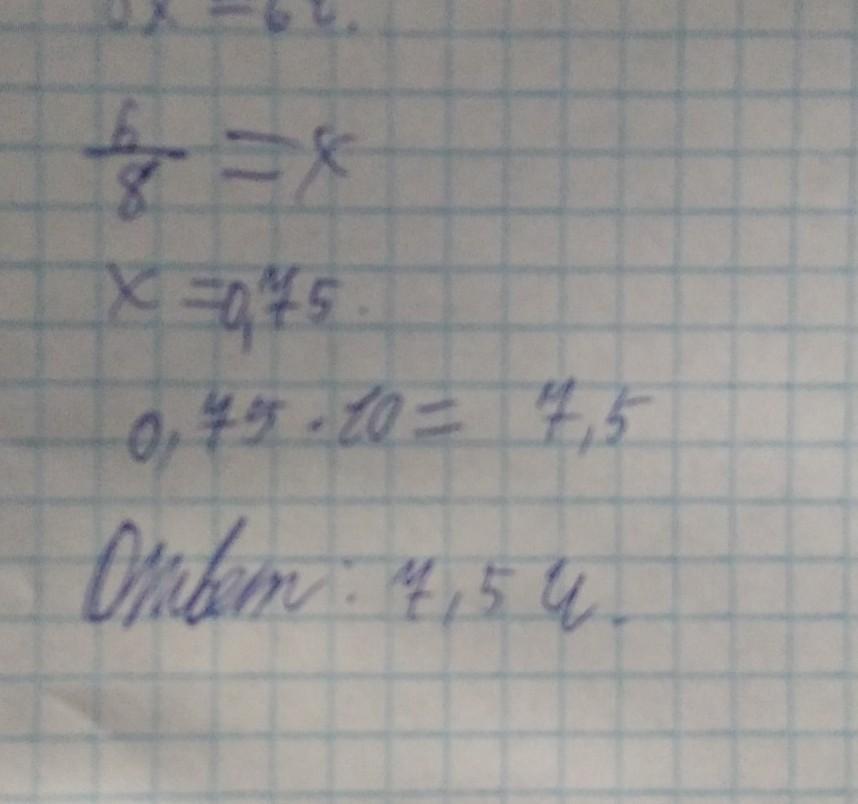 x = 6 ч.
6/8 = x
x = 0,75.
0,75 · 10 = 7,5
Ответ: 7,5 ч.